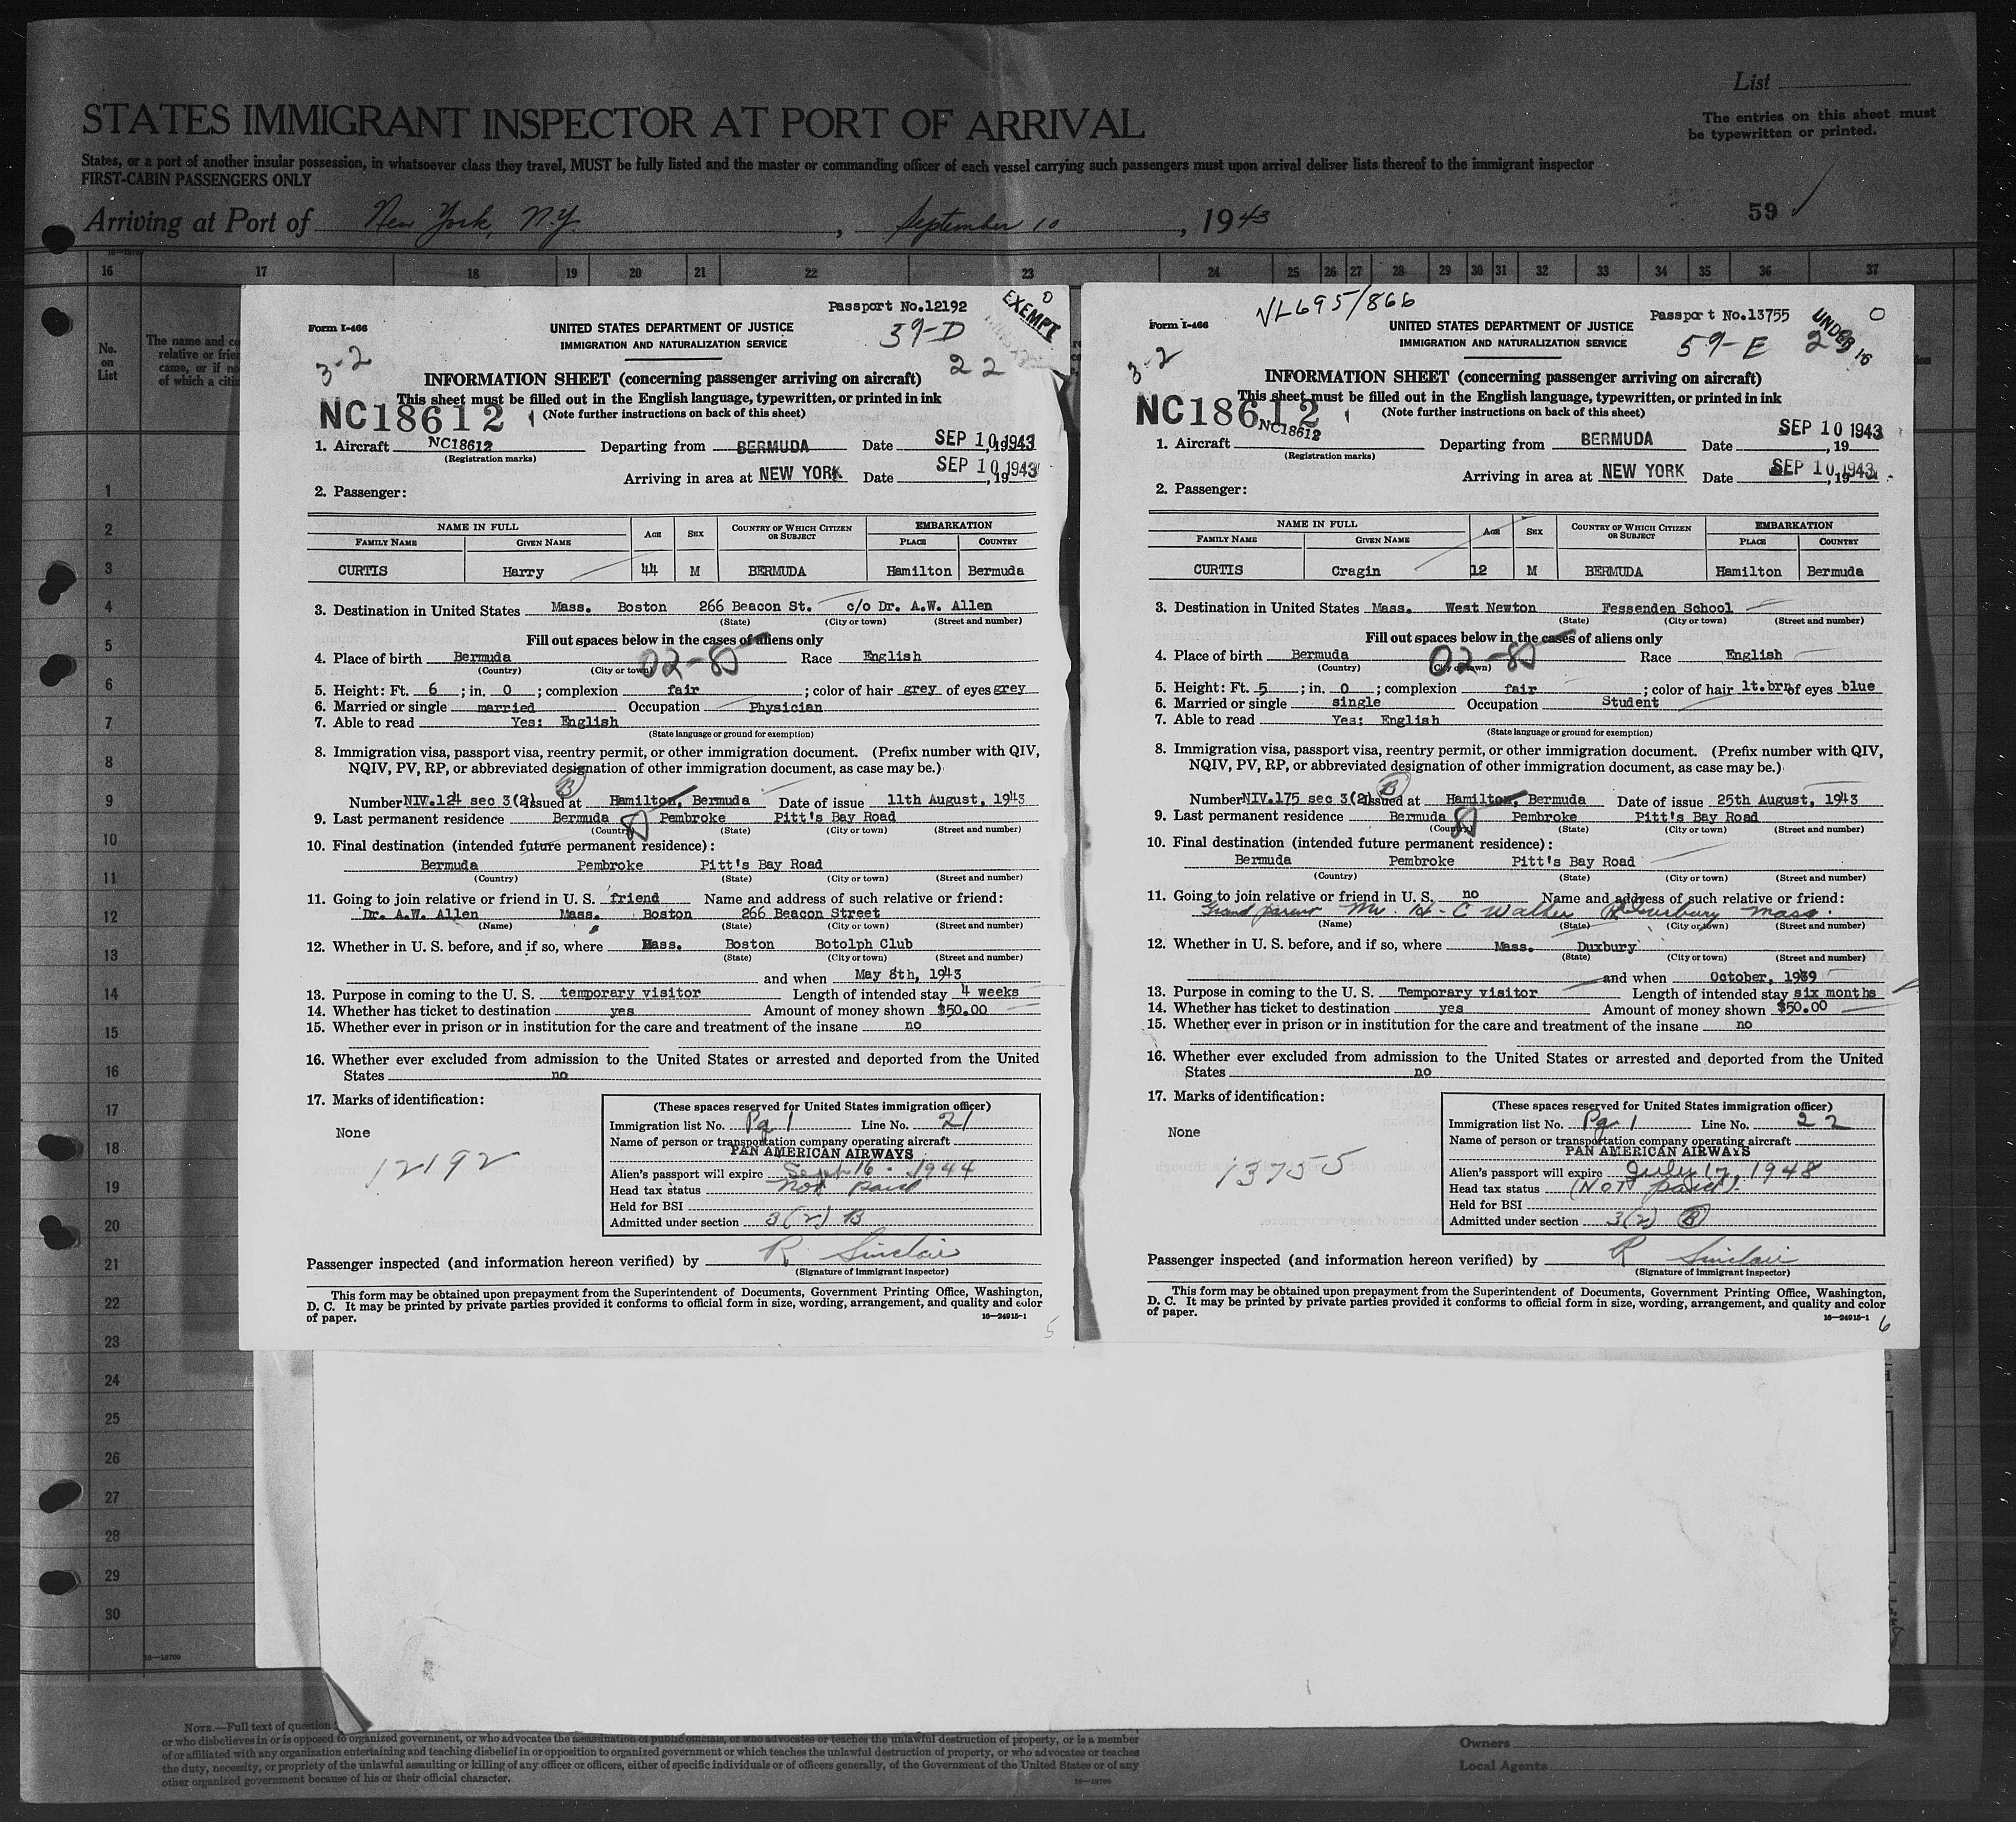 List
STATES IMMIGRANT INSPECTOR AT PORT OF ARRIVAL
The entries on this sheet must
be typewritten or printed.
States, or a port of another insular possession, in whatsoever class they travel, MUST be fully listed and the master or commanding officer of each vessel carrying such passengers must upon arrival deliver lists thereof to the immigrant inspector
FIRST-CABIN PASSENGERS ONLY
Arriving at Port of New York, N.Y. , September 10 , 1943 59
16-18709
16 17 18 19 20 21 22 23 24 25 26 27 28 29 30 31 32 33 34 35 36 37
No.
on
List
The name and co
relative or frie
came, or if no
of which a citi
1
2
3
4
5
6
7
8
9
10
11
12
13
14
15
16
17
18
19
20
21
22
23
24
25
26
27
28
29
30
Passport No.12192
EXEMPT 0
Form I-466
UNITED STATES DEPARTMENT OF JUSTICE
39-D
IMMIGRATION AND NATURALIZATION SERVICE
3-2
22
INFORMATION SHEET (concerning passenger arriving on aircraft)
This sheet must be filled out in the English language, typewritten, or printed in ink
NC18612 (Note further instructions on back of this sheet)
1. Aircraft NC18612 Departing from BERMUDA Date SEP 10 1943, 19
(Registration marks)
Arriving in area at NEW YORK Date SEP 10 1943, 19
2. Passenger:
NAME IN FULL AGE SEX COUNTRY OF WHICH CITIZEN OR SUBJECT EMBARKATION
FAMILY NAME GIVEN NAME PLACE COUNTRY
CURTIS Harry 44 M BERMUDA Hamilton Bermuda
3. Destination in United States Mass. Boston 266 Beacon St. c/o Dr. A.W. Allen
(State) (City or town) (Street and number)
Fill out spaces below in the cases of aliens only
4. Place of birth Bermuda 02-85 Race English
(Country) (City or town)
5. Height: Ft. 6 ; in. 0 ; complexion fair ; color of hair grey of eyes grey
6. Married or single married Occupation Physician
7. Able to read Yes: English
(State language or ground for exemption)
8. Immigration visa, passport visa, reentry permit, or other immigration document. (Prefix number with QIV,
NQIV, PV, RP, or abbreviated designation of other immigration document, as case may be.)
B
Number NIV.124 sec 3(2) Issued at Hamilton, Bermuda Date of issue 11th August, 1943
9. Last permanent residence Bermuda Pembroke Pitt's Bay Road
(Country) (State) (City or town) (Street and number)
10. Final destination (intended future permanent residence):
Bermuda Pembroke Pitt's Bay Road
(Country) (State) (City or town) (Street and number)
11. Going to join relative or friend in U. S. friend Name and address of such relative or friend:
Dr. A.W. Allen Mass. Boston 266 Beacon Street
(Name) (State) (City or town) (Street and number)
12. Whether in U. S. before, and if so, where Mass. Boston Botolph Club
(State) (City or town) (Street and number)
and when May 8th, 1943
13. Purpose in coming to the U. S. temporary visitor Length of intended stay 4 weeks
14. Whether has ticket to destination yes Amount of money shown $50.00
15. Whether ever in prison or in institution for the care and treatment of the insane no
16. Whether ever excluded from admission to the United States or arrested and deported from the United
States no
17. Marks of identification:
None
12192
(These spaces reserved for United States immigration officer)
Immigration list No. Pg 1 Line No. 21
Name of person or transportation company operating aircraft
PAN AMERICAN AIRWAYS
Alien's passport will expire Sept 16 . 1944
Head tax status Not paid
Held for BSI
Admitted under section 3(2) B
Passenger inspected (and information hereon verified) by R Sinclair
(Signature of immigrant inspector)
This form may be obtained upon prepayment from the Superintendent of Documents, Government Printing Office, Washington,
D. C. It may be printed by private parties provided it conforms to official form in size, wording, arrangement, and quality and color
of paper.
16-24915-1
5
VL695/866
Passport No.13755
UNDER 16
0
Form I-466
UNITED STATES DEPARTMENT OF JUSTICE
59-E
IMMIGRATION AND NATURALIZATION SERVICE
3-2
INFORMATION SHEET (concerning passenger arriving on aircraft)
This sheet must be filled out in the English language, typewritten, or printed in ink
NC18612 (Note further instructions on back of this sheet)
1. Aircraft NC18612 Departing from BERMUDA Date SEP 10 1943, 19
(Registration marks)
Arriving in area at NEW YORK Date SEP 10 1943, 19
2. Passenger:
NAME IN FULL AGE SEX COUNTRY OF WHICH CITIZEN OR SUBJECT EMBARKATION
FAMILY NAME GIVEN NAME PLACE COUNTRY
CURTIS Cragin 12 M BERMUDA Hamilton Bermuda
3. Destination in United States Mass. West Newton Fessenden School
(State) (City or town) (Street and number)
Fill out spaces below in the cases of aliens only
4. Place of birth Bermuda 02-85 Race English
(Country) (City or town)
5. Height: Ft. 5 ; in. 0 ; complexion fair ; color of hair lt.brn of eyes blue
6. Married or single single Occupation Student
7. Able to read Yes: English
(State language or ground for exemption)
8. Immigration visa, passport visa, reentry permit, or other immigration document. (Prefix number with QIV,
NQIV, PV, RP, or abbreviated designation of other immigration document, as case may be.)
B
Number NIV.175 sec 3(2) Issued at Hamilton, Bermuda Date of issue 25th August, 1943
9. Last permanent residence Bermuda Pembroke Pitt's Bay Road
(Country) (State) (City or town) (Street and number)
10. Final destination (intended future permanent residence):
Bermuda Pembroke Pitt's Bay Road
(Country) (State) (City or town) (Street and number)
11. Going to join relative or friend in U. S. no Name and address of such relative or friend:
Grand parent Mr. C Walker Mass.
(Name) (State) (City or town) (Street and number)
12. Whether in U. S. before, and if so, where Mass. Duxbury
(State) (City or town) (Street and number)
and when October, 1939
13. Purpose in coming to the U. S. Temporary visitor Length of intended stay six months
14. Whether has ticket to destination yes Amount of money shown $50.00
15. Whether ever in prison or in institution for the care and treatment of the insane no
16. Whether ever excluded from admission to the United States or arrested and deported from the United
States no
17. Marks of identification:
None
13755
(These spaces reserved for United States immigration officer)
Immigration list No. Pg 1 Line No. 22
Name of person or transportation company operating aircraft
PAN AMERICAN AIRWAYS
Alien's passport will expire July 17, 1948
Head tax status (Not paid)
Held for BSI
Admitted under section 3(2) B
Passenger inspected (and information hereon verified) by R Sinclair
(Signature of immigrant inspector)
This form may be obtained upon prepayment from the Superintendent of Documents, Government Printing Office, Washington,
D. C. It may be printed by private parties provided it conforms to official form in size, wording, arrangement, and quality and color
of paper.
16-24915-1
6
16-18709
NOTE.—Full text of question
or who disbelieves in or is opposed to organized government, or who advocates the assassination of public officials, or who advocates or teaches the unlawful destruction of property, or is a member
of or affiliated with any organization entertaining and teaching disbelief in or opposition to organized government or which teaches the unlawful destruction of property, or who advocates or teaches
the duty, necessity, or propriety of the unlawful assaulting or killing of any officer or officers, either of specific individuals or of officers generally, of the Government of the United States or of any
other organized government because of his or their official character.
16-18709
Owners
Local Agents